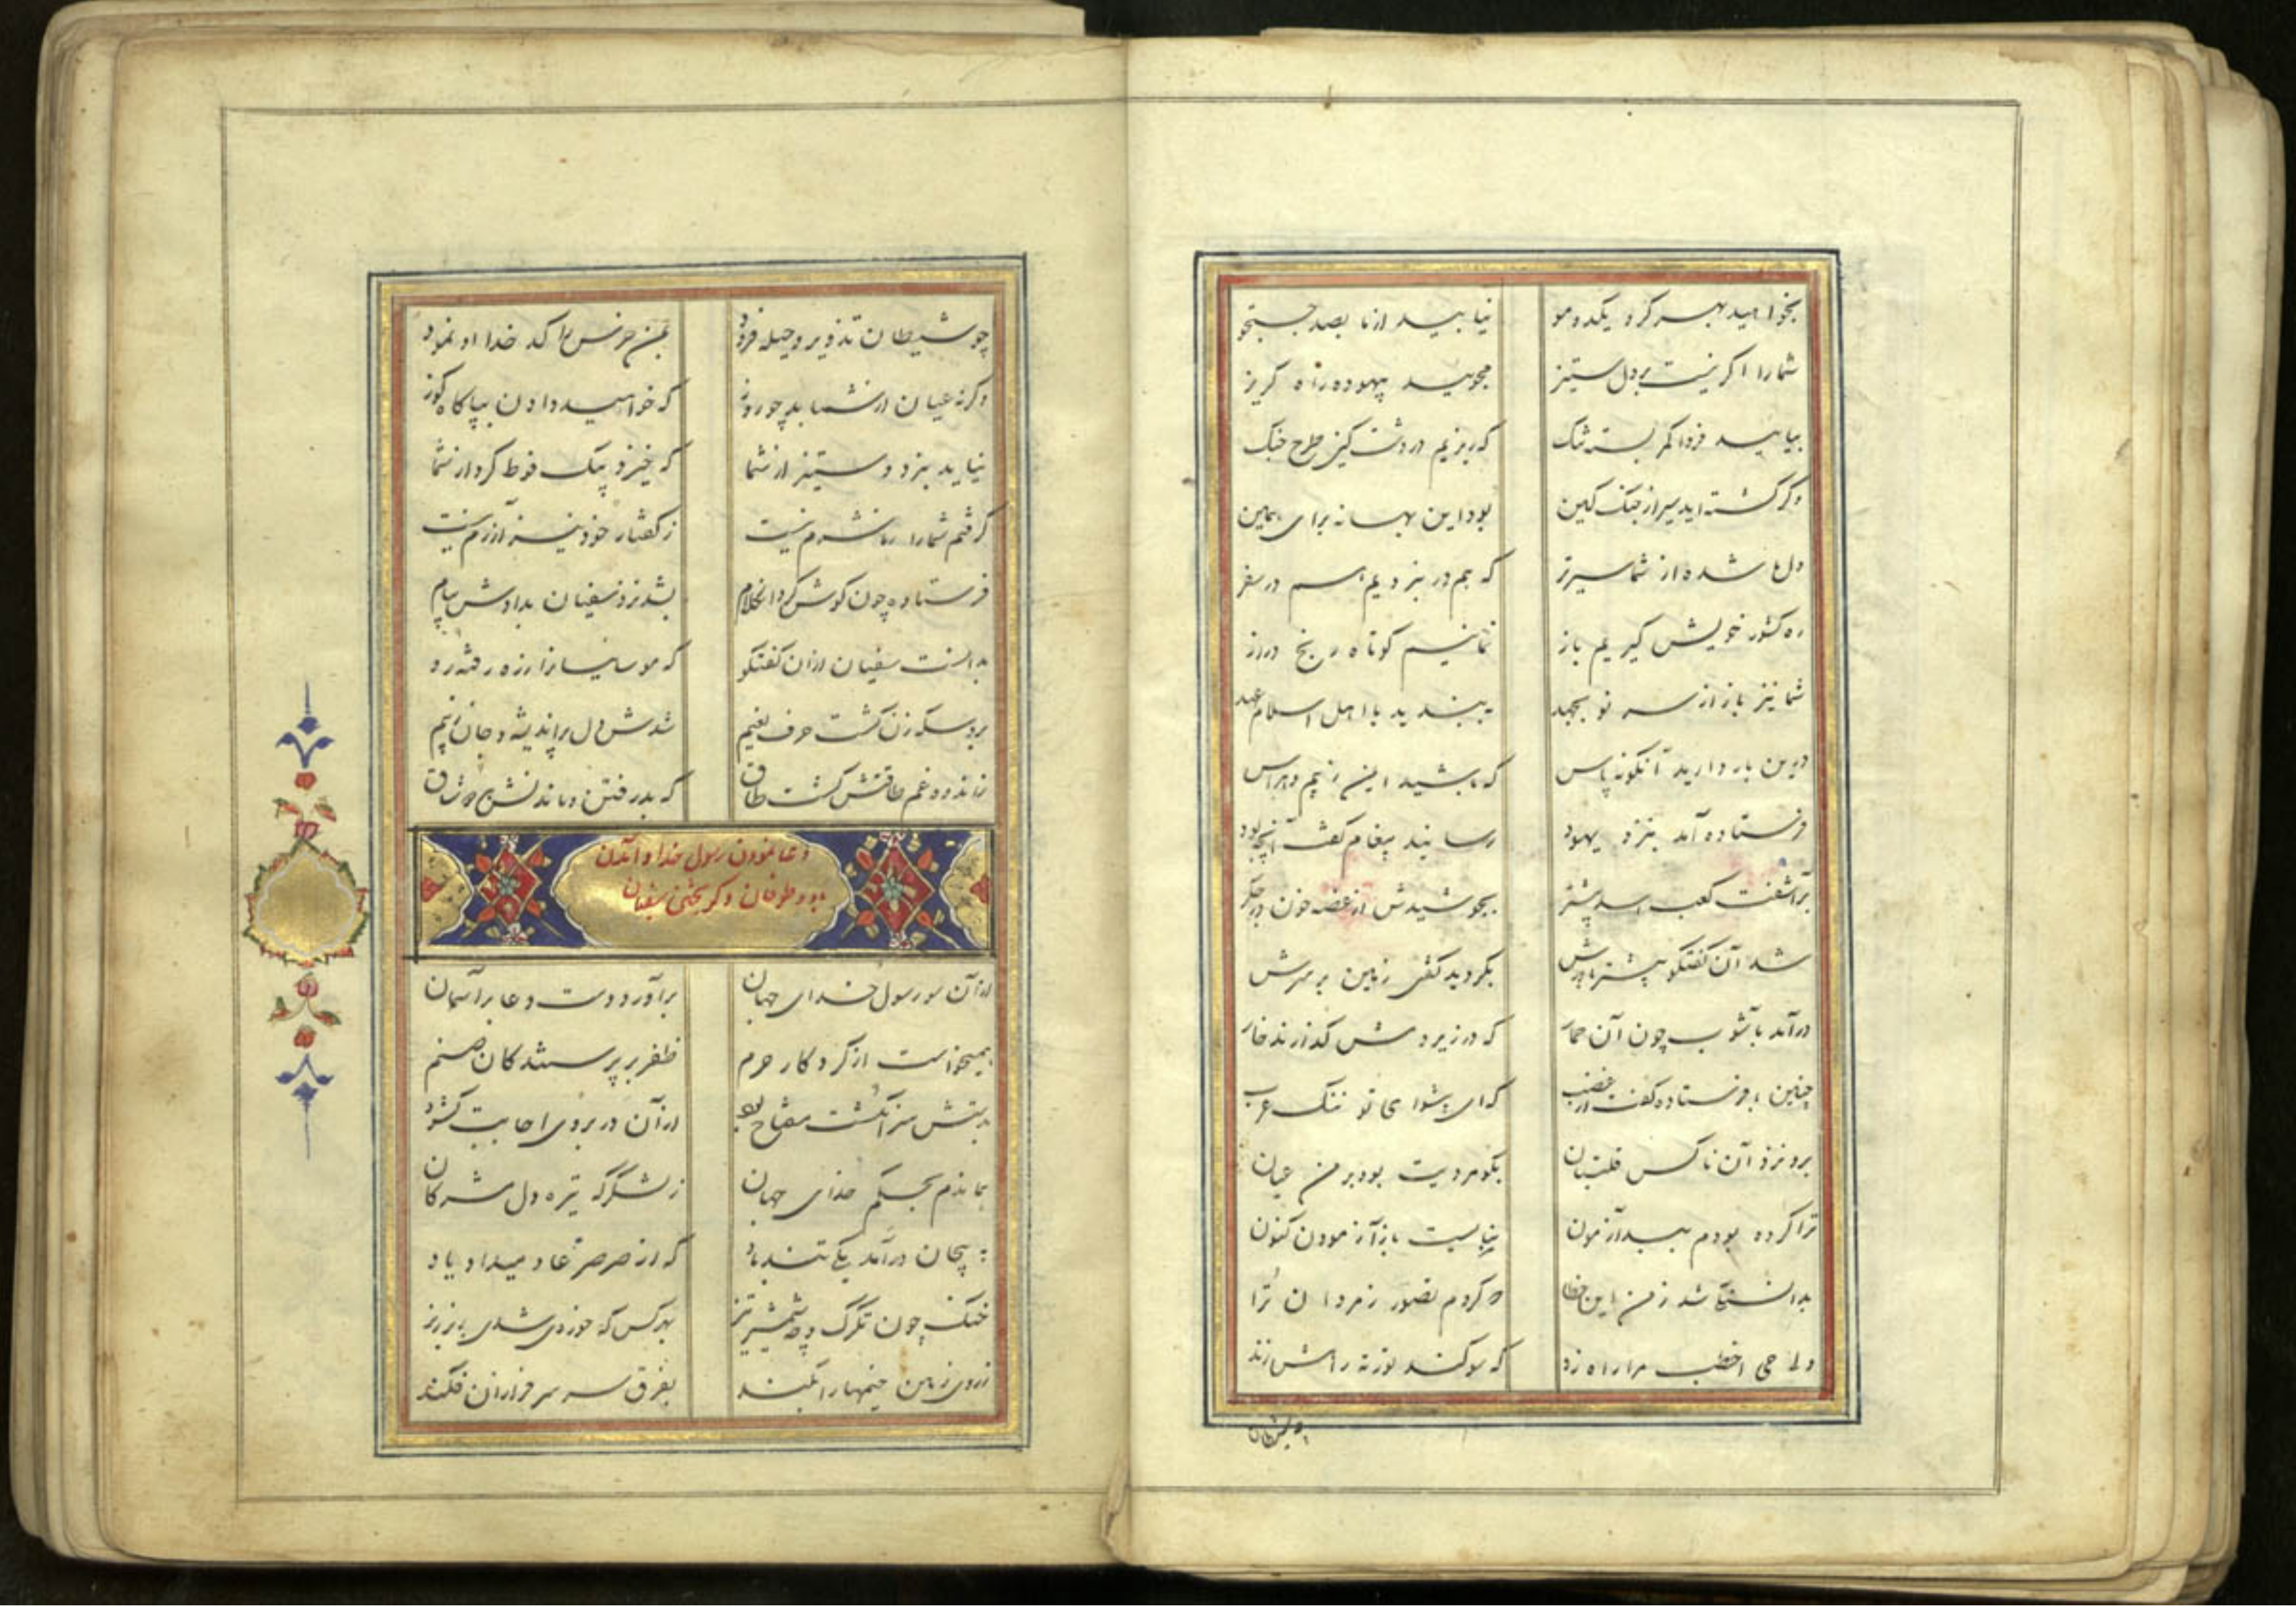 بخواهید بهر کرو یکدومو نیابید از ما بصد جستجو
شما را اکر نیست بر دل ستیز مجویید بیهوده راه کریز
بیایید فردا کمر بسته تنک که ریزیم در دشت کین طرح جنک
وکر کشته اید سیر از جنک کین بود این بهانه برای همین
دل ما شده از شما سیرتر که هم در نبردیم هم در سفر
ره کشور خویش کیریم باز نماییم کوتاه رنج دراز
شما نیز باز از سر نو بجهد ببندید با اهل اسلام عهد
درین بار دارید آنکونه پاس که باشید ایمن ز بیم و هراس
فرستاده آمد بنزد یهود رسانید پیغام کفت آنچه بود
برآشفت کعب اسد بیشتر بجوشیدش از غصه خون در جکر
شد آن کفتکو بیشتر باورش بکردید کفتی زمین بر سرش
درآمد بآشوب چون آن حمار که در زیر دمش کذارند خار
چنین با فرستاده کفت از غضب که ای پیشوای تو ننک عرب
برو نزد آن ناکس قلتبان بکو مردیت بود بر من عیان
ترا کرده بودم بسد آزمون نبایست باز آزمودن کنون
بدانستم تا شد ز من این خطا که کردم تصور ز مردان ترا
ولی حی اخطب مرا راه زد که سوکند توریه راهش زند
چو شیطان تذویر و حیله فزود بمن خرنس را کد خدا او نمود
وکرنه عیان از شما بد چو روز که خواهید دادن بپاکاه کوز
نیاید نبرد و ستیز از شما که خیزد پیک ضرط کرد از شما
کرفتم شما را ز ما شرم نیست ز کفتار خود نیز آزرم نیست
فرستاده چون کوش کرد آن کلام بشد نزد سفیان بدادش پیام
بدانست سفیان از آن کفتکو که موسائیانرا ز ره رفته رو
برو سکه زن کشت حرف نعیم شدش دل پر اندیشه و جان ز بیم
ز اندوه و غم طاقتش کشت طاق که بد رفتن و ماندنش هر دو شاق
دعا نمودن رسول خدا و آمدن
باد و طوفان و کریختن سفیان
از آن سو رسول خدای جهان برآورد دست دعا بر آسمان
همیخواست از کردکار حرم ظفر بر پرستندکان صنم
بدستش سر انکشت مفتاح بود از آن در بروی اجابت کشود
هماندم بحکم خدای جهان ز لشکرکه تیره دل مشرکان
پیچان درآمد یکی تندباد که از صرصر عاد میداد یاد
خنک چون تکرک و چو شمشیر تیز بهر کس که خوردی شدی ریز ریز
ز روی زمین خیمها را بکند بفرق سر سرفرازان فکند